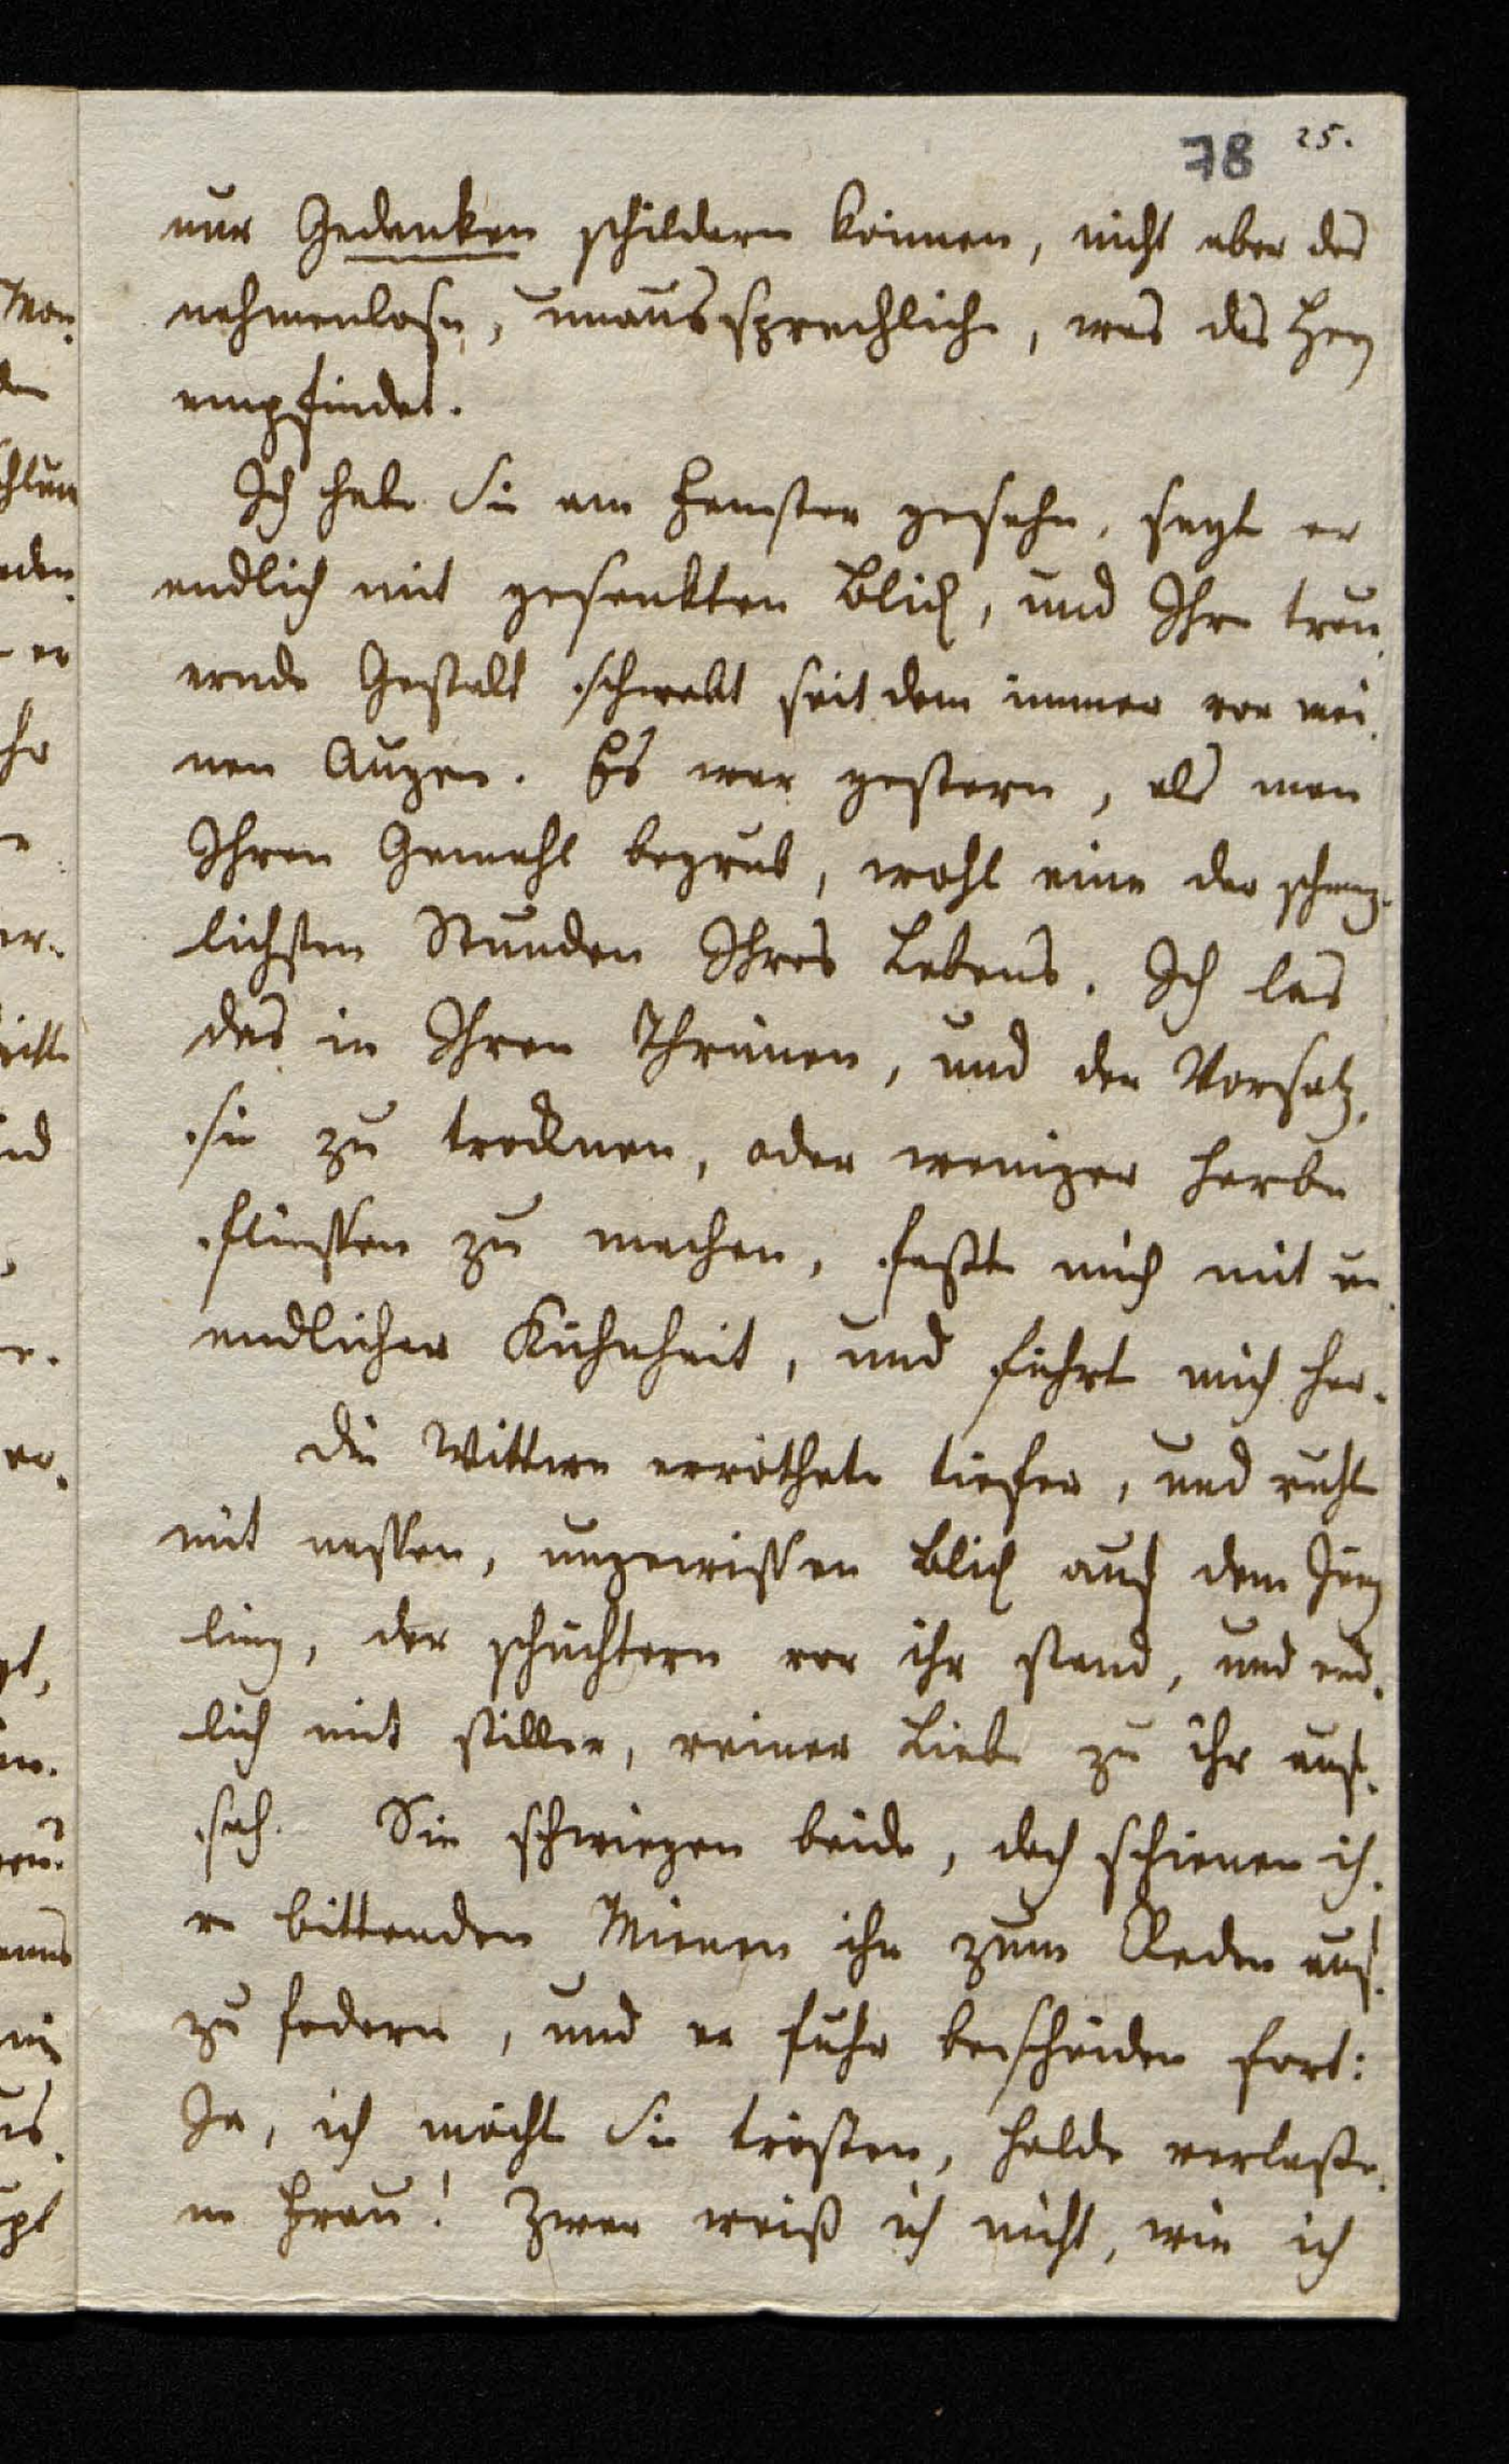 78 25.
nur Gedanken schildern können, nicht aber das
nahmenlose, unaussprechliche, was das Herz
empfindet.
Ich habe Sie am Fenster gesehn, sagte er
endlich mit gesenkten Blick, und Ihre trau¬
ernde Gestalt schwebt seit dem immer vor mei¬
nen Augen. Es war gestern, als man
Ihren Gemahl begrub, wohl eine der schmerz¬
lichsten Stunden Ihres Lebens. Ich las
das in Ihren Thränen, und der Vorsatz,
sie zu trocknen, oder weniger herbe
fliessen zu machen, faßte mich mit un¬
endlicher Kühnheit, und führte mich her.
Die Wittwe erröthete tiefer, und ruhte
mit nassen, ungewissen Blick auf dem Jüng
ling, der schüchtern vor ihr stand, und end¬
lich mit stiller, reiner Liebe zu ihr auf¬
sah. Sie schwiegen beide, doch schienen ih¬
re bittenden Mienen ihn zum Reden auf¬
zu fodern, und er fuhr bescheiden fort:
Ja, ich möchte Sie trösten, holde verlaße¬
ne Frau! Zwar weiß ich nicht, wie ich